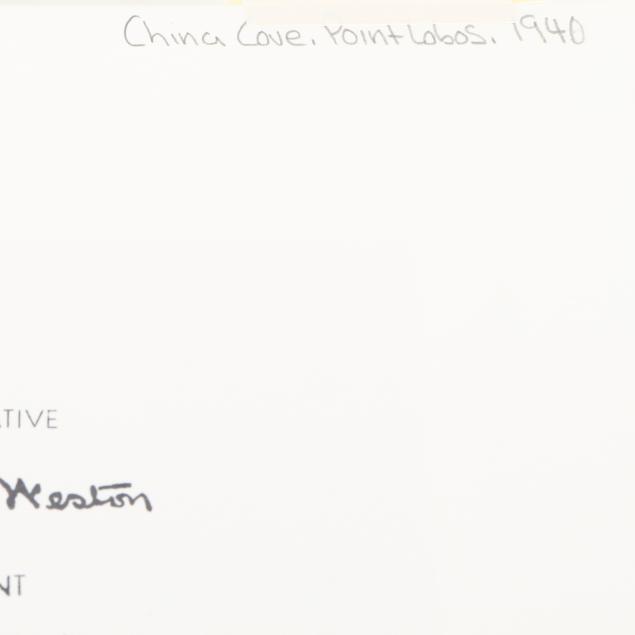 China Cove. Point Lobos. 1940
TIVE
Weston
NT